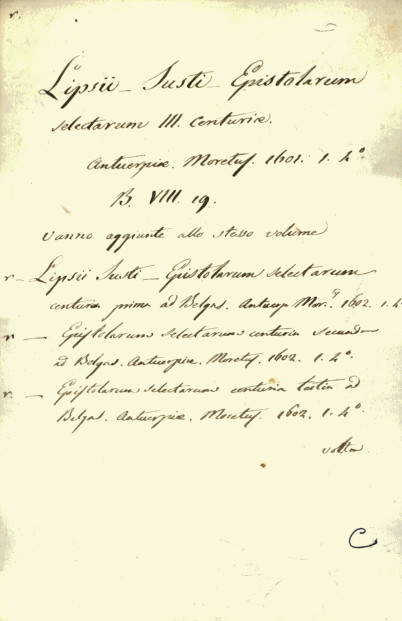 r.
Lipsii _ Justi _ Epistolarum
selectarum III. Centuriæ.
Antuerpiæ. Moretus. 1601. 1. 4°
B. VIII. 19.
vanno aggiunte allo stesso volume
r – Lipsii Justi – Epistolarum selectarum
centuria prima ad Belgas. Antuerp. Mor. 1602. 1. 4
r – Epistolarum selectarum centuria secunda
ad Belgas. Antuerpiæ. Moretus. 1602. 1. 4°.
r. – Epistolarum selectarum centuria tertia ad
Belgas. Antuerpiæ. Moretus. 1602. 1. 4°.
volta
C